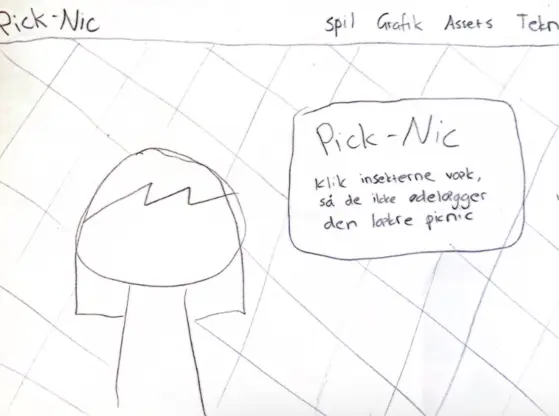 Pick-Nic
Spil Grafik Assets Tekn
Pick-Nic
Klik insekterne væk,
så de ikke ødelægger
den lækre picnic